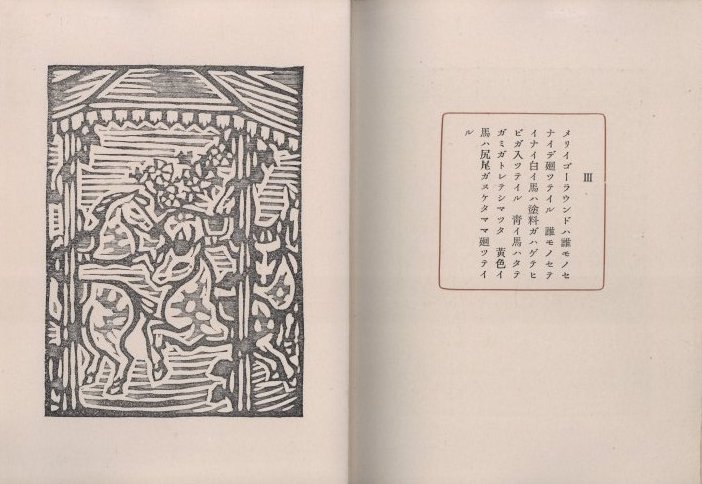 III
メリイゴーラウンドハ誰モノセ
ナイデ廻ツテイル　誰モノセテ
イナイ白イ馬ハ塗料ガハゲテヒ
ビガ入ツテイル　青イ馬ハタテ
ガミガトレテシマツタ　黄色イ
馬ハ尻尾ガヌケタママ廻ツテイ
ル